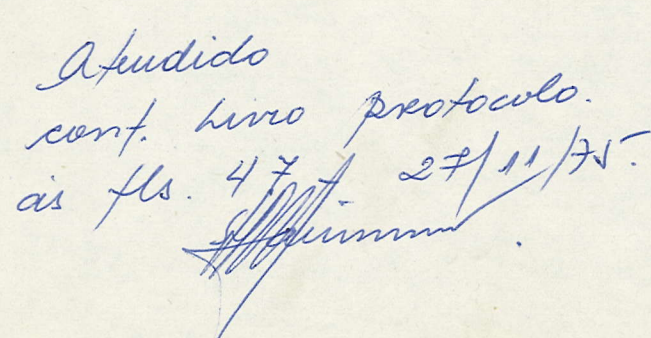 Atendido
conf. Livro protocolo.
às fls. 47 27/11/75.